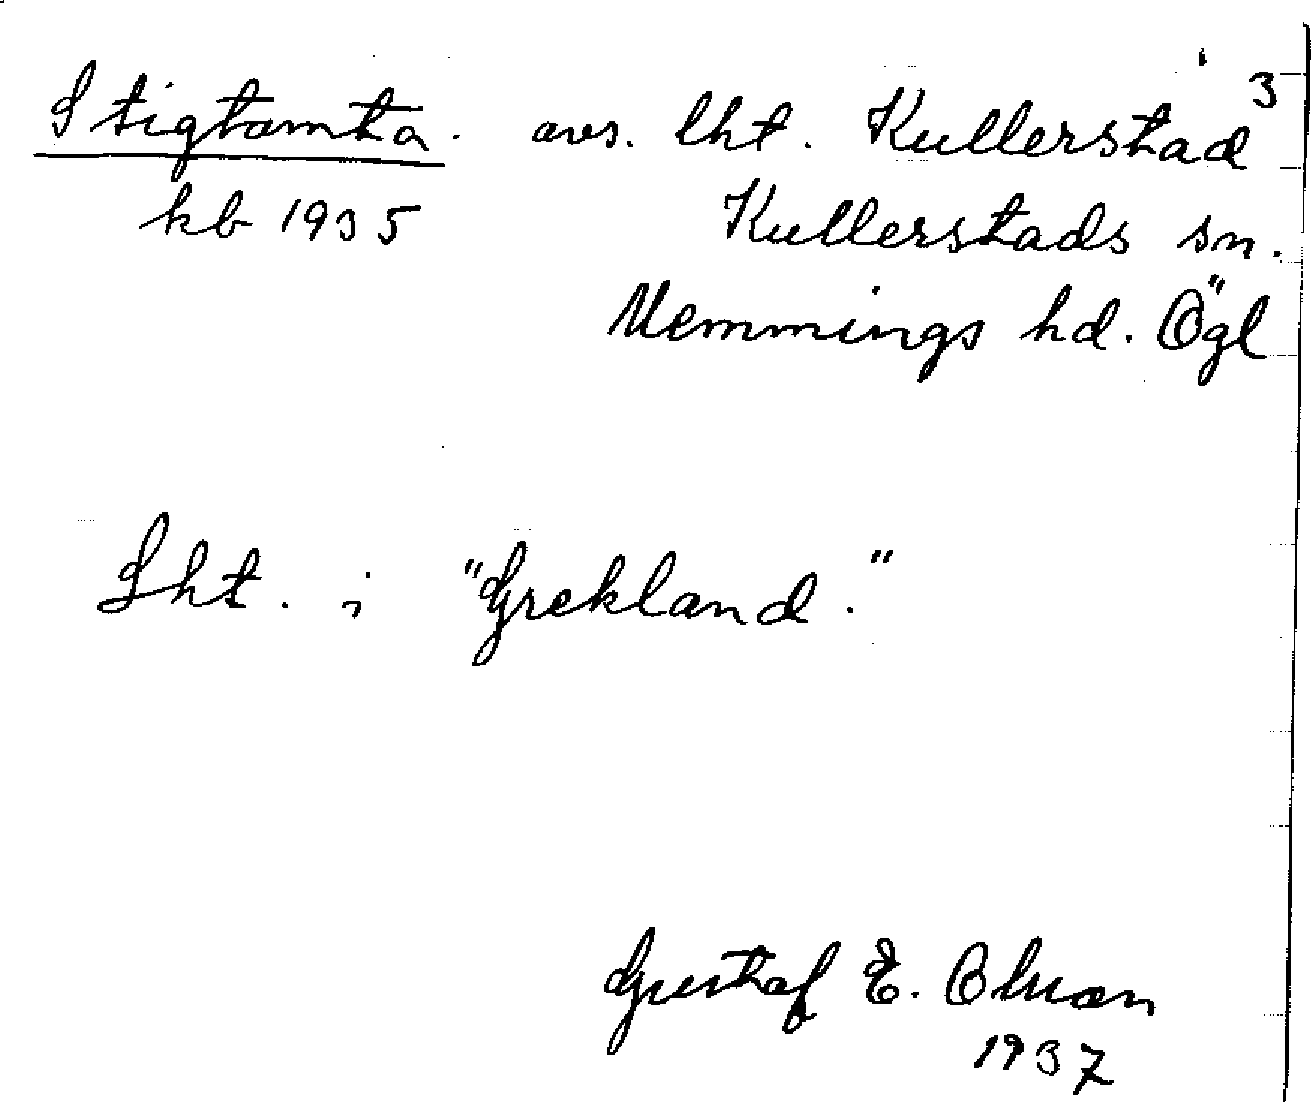 Stigtomta. avs. lht. Kullerstad 3
kb 1935 Kullerstads sn.
Memmings hd. Ögl
Lht. i "Grekland."
Gustaf E. Olsson
1937